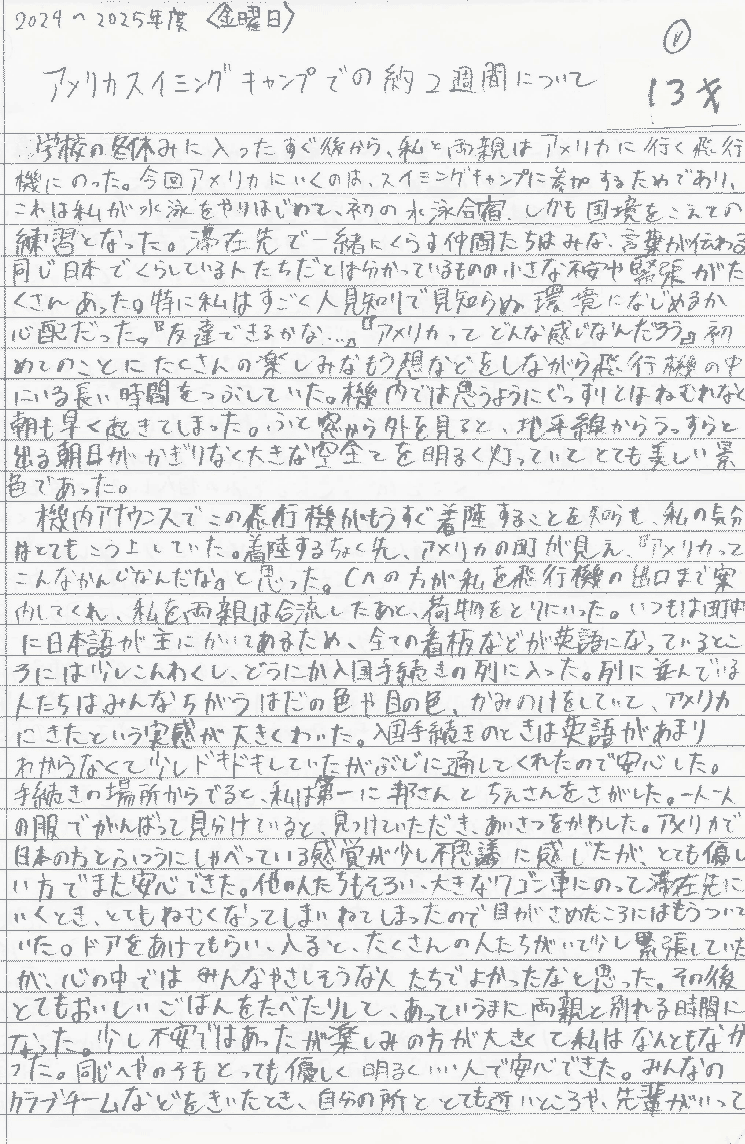 2024~2025年度 〈金曜日〉
①
アメリカスイミングキャンプでの約2週間について
13才
学校の冬休みに入ったすぐ後から、私と両親はアメリカに行く飛行
機にのった。今回アメリカにいくのは、スイミングキャンプに参加するためであり、
これは私が水泳をやりはじめて、初の水泳合宿、しかも国境をこえての
練習となった。滞在先で一緒にくらす仲間たちはみな、言葉が伝わる
同じ日本でくらしている人たちだとは分かっているものの小さな不安や緊張がた
くさんあった。特に私はすごく人見知りで見知らぬ環境になじめるか
心配だった。『友達できるかな…』『アメリカってどんな感じなんだろう』初
めてのことにたくさんの楽しみなもう想などをしながら飛行機の中
にいる長い時間をつぶしていた。機内では思うようにぐっすりとはねむれなく
朝も早く起きてしまった。ふと窓から外を見ると、地平線からうっすらと
出る朝日がかぎりなく大きな空全てを明るく灯っていてとても美しい景
色であった。
機内アナウンスでこの飛行機がもうすぐ着陸することを知らせ、私の気分
はとてもこう上していた。着陸するちょく先、アメリカの町が見え、『アメリカって
こんなかんじなんだな』と思った。CAの方が私を飛行機の出口まで案
内してくれ、私と両親は合流したあと、荷物をとりにいった。いつもは町中
に日本語が主にかいてあるため、全ての看板などが英語になっているとこ
ろには少しこんわくし、どうにか入国手続きの列に入った。列に並んでいる
人たちはみんなちがうはだの色や目の色、かみのけをしていて、アメリカ
にきたという実感が大きくわいた。入国手続きのときは英語があまり
わからなくて少しドキドキしていたがぶじに通してくれたので安心した。
手続きの場所からでると、私は第一に邦さんとちえさんをさがした。一人一人
の服でがんばって見分けていると、見つけていただき、あいさつをかわした。アメリカで
日本の方とふつうにしゃべっている感覚が少し不思議に感じたが、とても優し
い方でまた安心できた。他の人たちもそろい、大きなワゴン車にのって滞在先に
いくとき、とてもねむくなってしまいねてしまったので目がさめたころにはもうついて
いた。ドアをあけてもらい、入ると、たくさんの人たちがいて少し緊張していた
が、心の中ではみんなやさしそうな人たちでよかったなと思った。その後
とてもおいしいごはんをたべたりして、あっというまに両親と別れる時間に
なった。少し不安ではあったが楽しみの方が大きくて私はなんともなか
った。同じへやの子もとっても優しく明るくいい人で安心できた。みんなの
クラブチームなどをきいたとき、自分の所ととても近いところや、先輩がいって